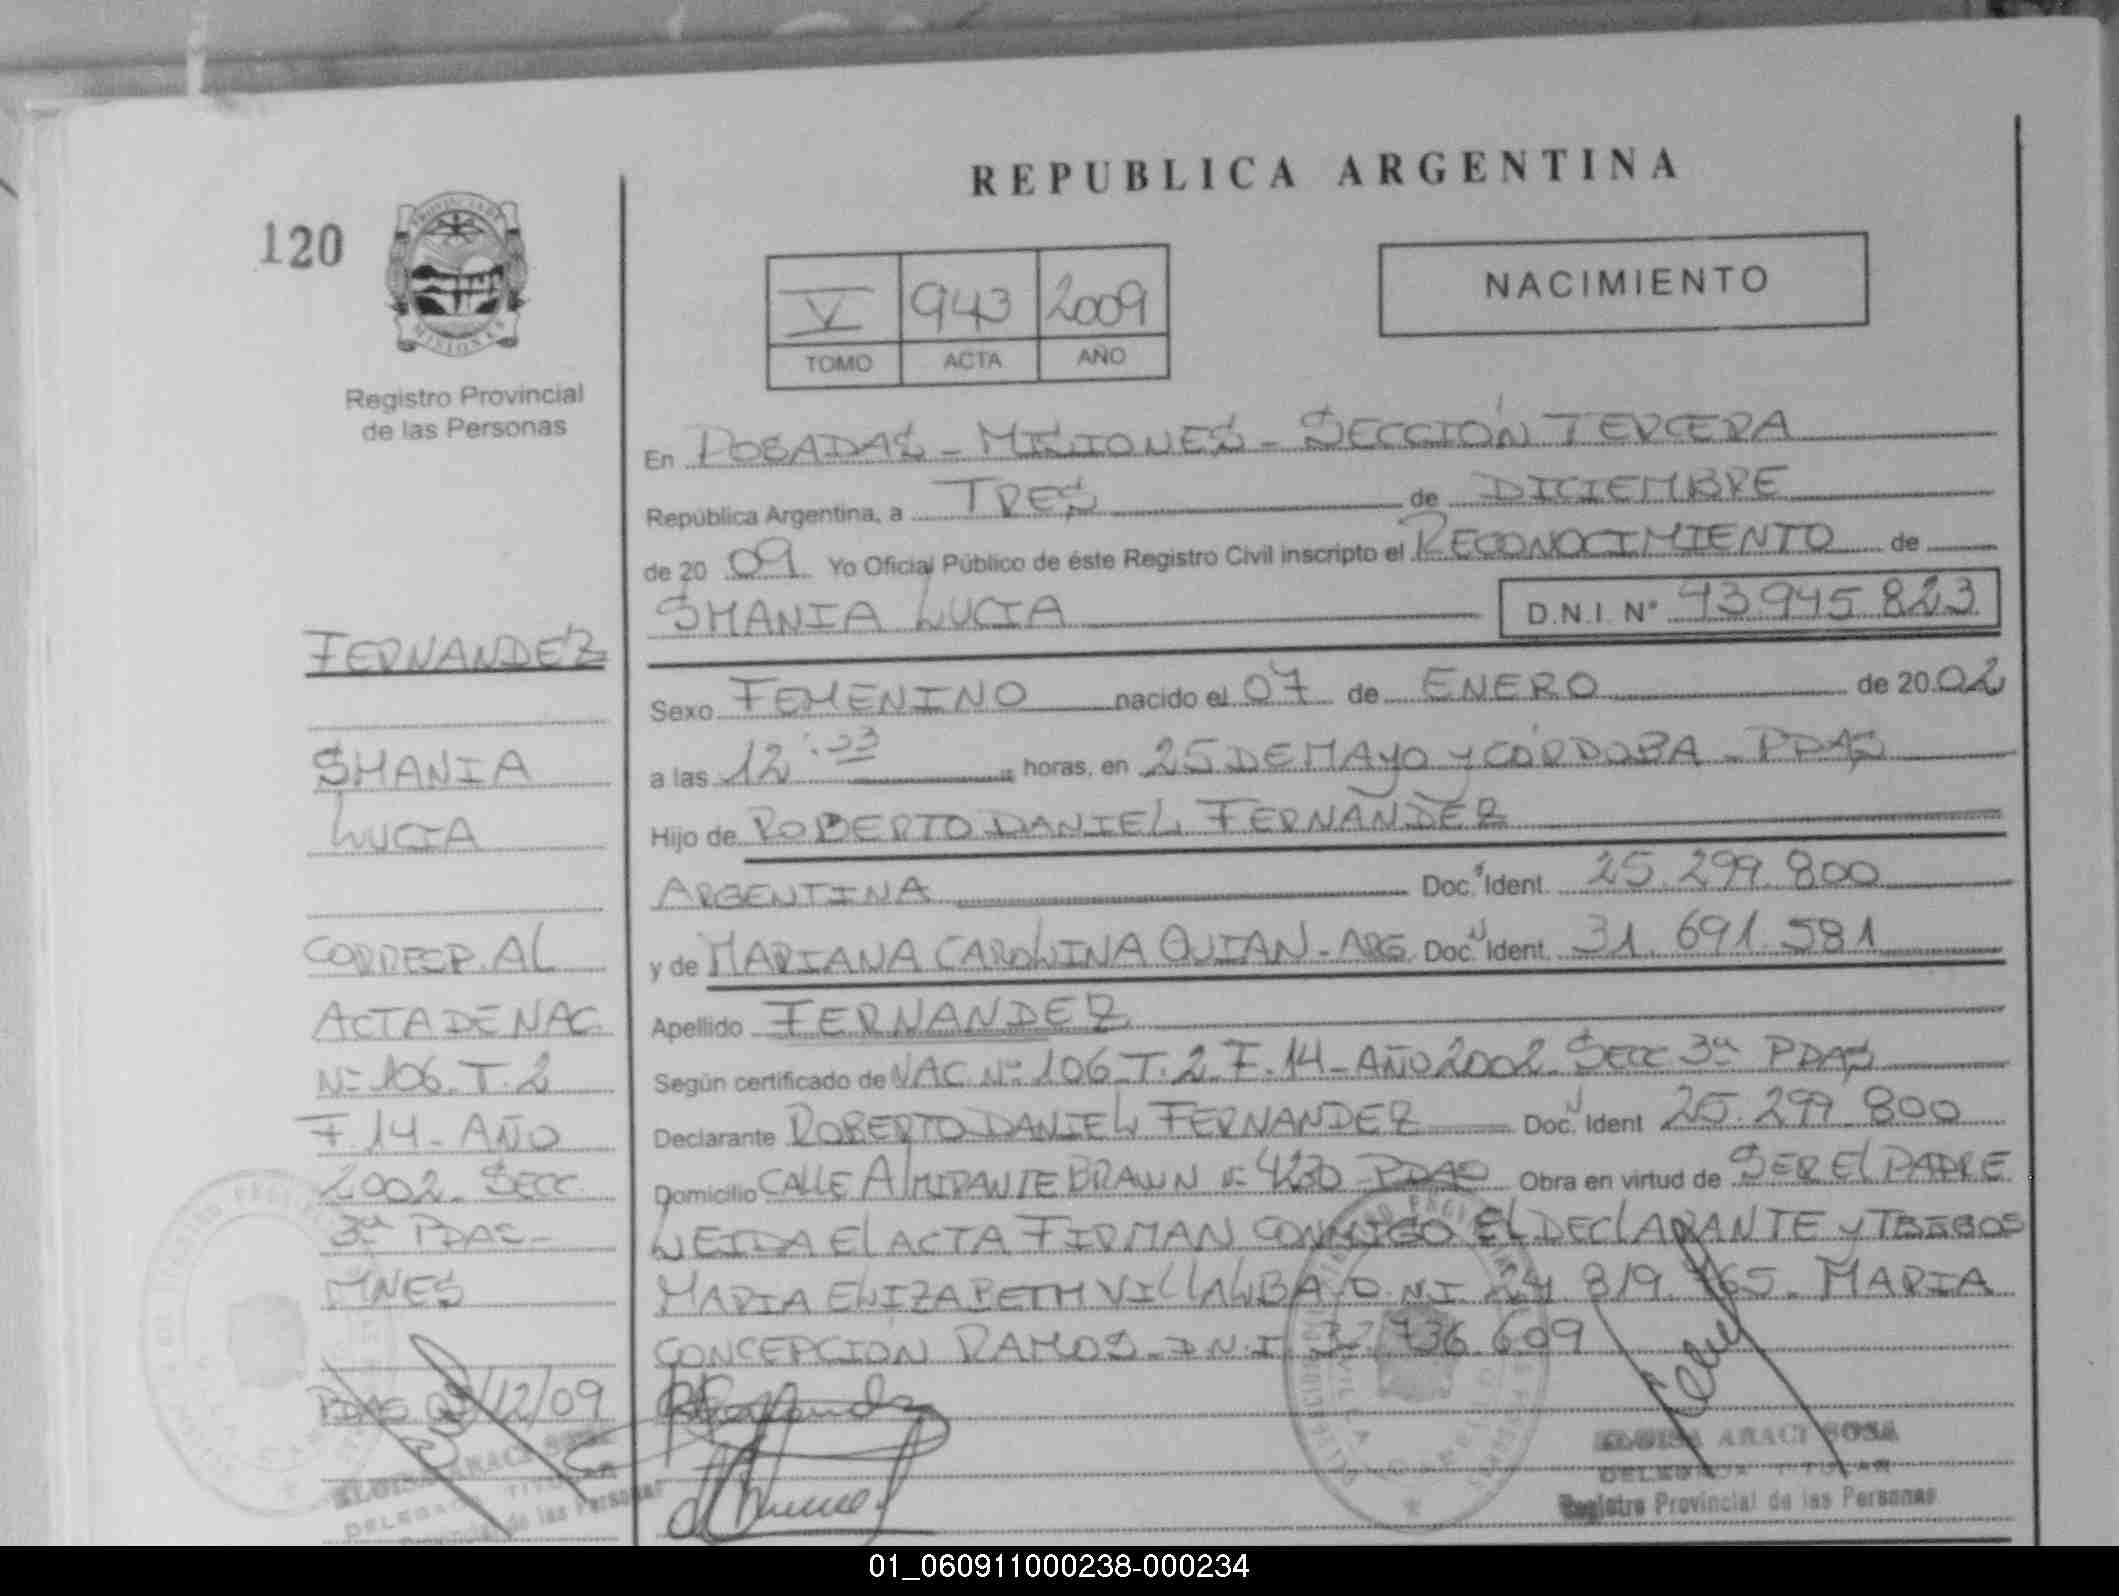 REPUBLICA ARGENTINA
120
PROVINCIA DE
MISIONES
Registro Provincial
de las Personas
V 943 2009
TOMO ACTA AÑO
NACIMIENTO
En POSADAS - MISIONES - SECCIÓN TERCERA
República Argentina, a TRES de DICIEMBRE
de 20 09 Yo Oficial Público de éste Registro Civil inscripto el RECONOCIMIENTO de
SHANIA LUCIA D.N.I. Nº 43.945.823
Sexo FEMENINO nacido el 07 de ENERO de 20 02
a las 12:33 horas, en 25 DE MAYO y CÓRDOBA - PDAS
Hijo de ROBERTO DANIEL FERNANDEZ
ARGENTINA Doc. Ident. 25.299.800
y de MARIANA CAROLINA QUIAN - ARG. Doc. Ident. 31.691.581
Apellido FERNANDEZ
Según certificado de NAC. Nº 106 T. 2 F. 14 - AÑO 2002 SECC 3ª PDAS
Declarante ROBERTO DANIEL FERNANDEZ Doc. Ident 25.299.800
Domicilio CALLE AlMIRANTE BRAWN Nº 4230 PDAS Obra en virtud de SER El PADRE
LEIDA El ACTA FIRMAN CONMIGO EL DEClARANTE y
MARIA ELIZABETH VIllALBA D.N.I. MARIA
CONCEPCIÓN RAMOS D.N.I. 32.736.609
FERNANDEZ
SHANIA
LUCIA
CORRESP. AL
ACTA DE NAC.
Nº 106. T. 2
F. 14 - AÑO
2002. SECC.
3ª PDAS -
MNES
PDAS 03/12/09
ELOISA ARACI SOSA
DELEGADA TITULAR
Provincial de las Personas
ELOISA ARACI SOSA
DELEGADA TITULAR
Registro Provincial de las Personas
01_060911000238-000234